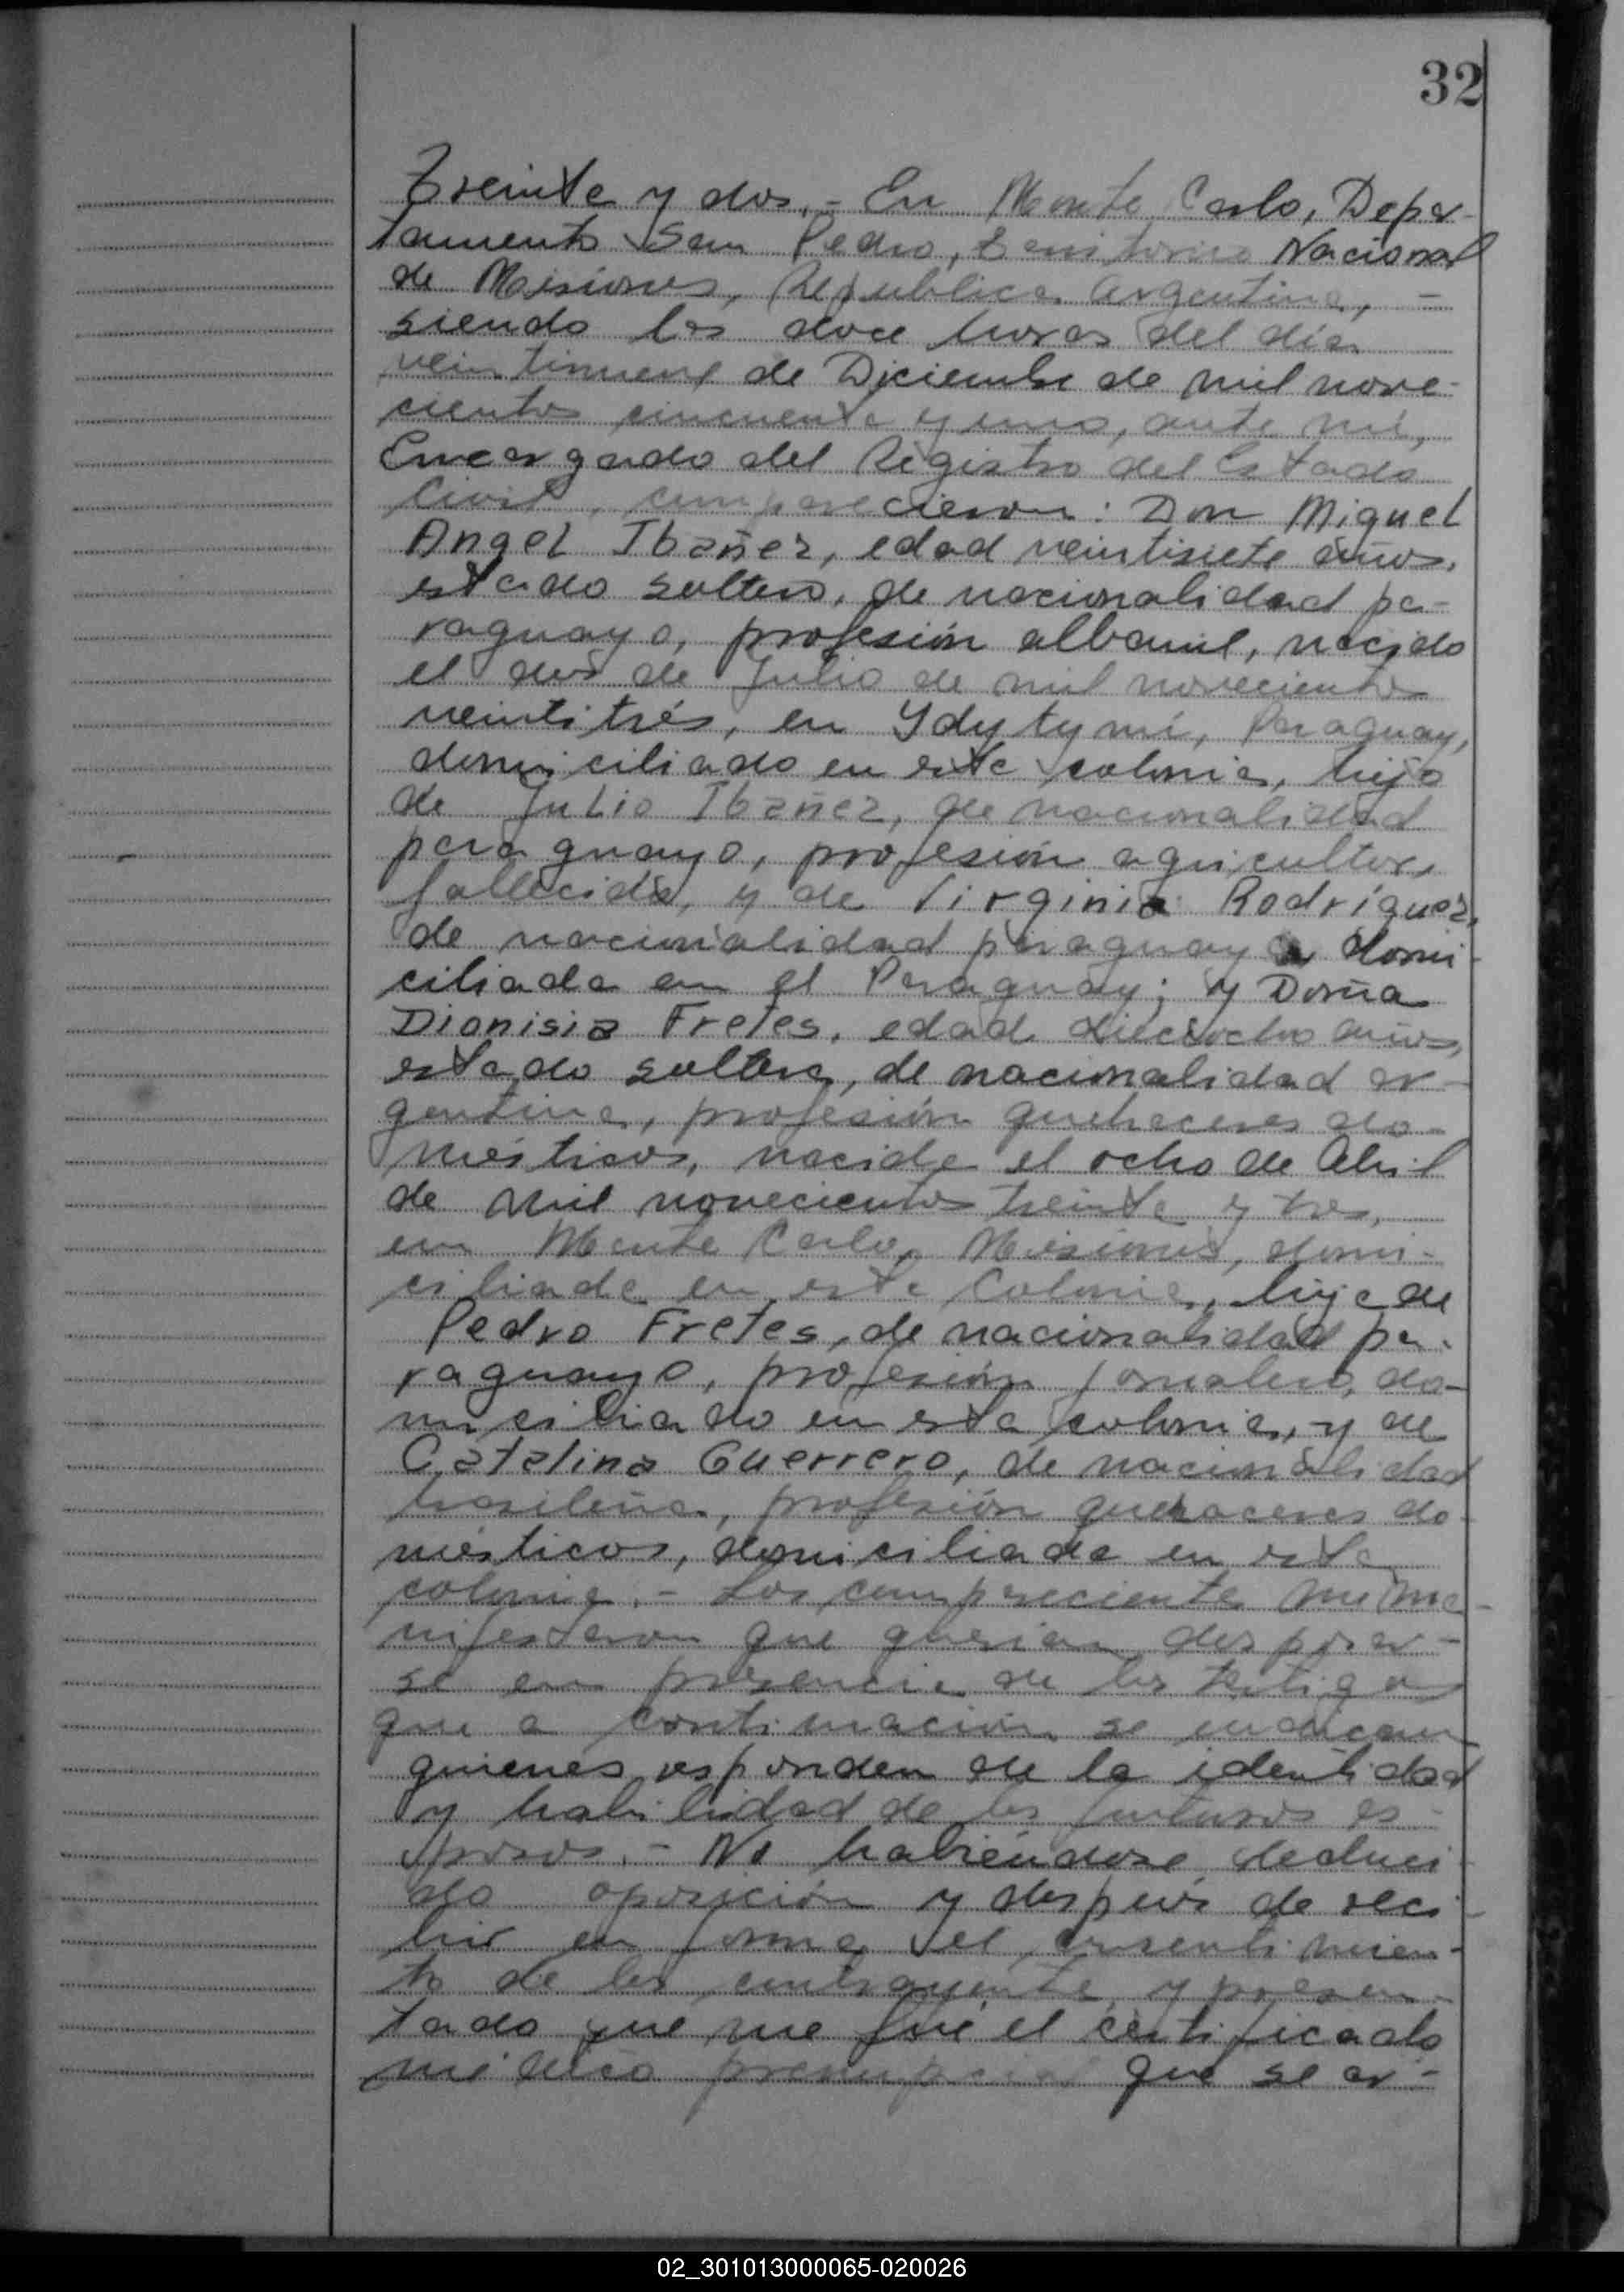 32
Treinte y dos.- En Monte Carlo, Depar-
tamento San Pedro, Territorio Nacional
de Misiones, Republica Argentina, -
siendo las doce horas del día
veintinueve de Diciembre de mil nove-
cientos cincuenta y uno, ante mí,
Encargado del Registro del Estado
Civil, comparecieron: Don Miguel
Angel Ibañez, edad veintisiete años,
estado soltero, de nacionalidad pa-
raguayo, profesión albanil, nacido
el dos de Julio de mil novecientos
veintitrés, en Ydytymí, Paraguay,
domiciliado en esta colonia, hijo
de Julio Ibañez, de nacionalidad
paraguayo, profesión agricultor,
fallecido, y de Virginia Rodríguez,
de nacionalidad paraguaya domi-
ciliada en el Paraguay; y Doña
Dionisia Fretes, edad dieciocho años,
estado soltera, de nacionalidad ar-
gentina, profesión quehaceres do-
mésticos, nacida el ocho de Abril
de mil novecientos treinta y tres,
en Monte Carlo, Misiones, domi-
ciliada en esta Colonia, hija de
Pedro Fretes, de nacionalidad pa-
raguayo, profesión jornalero, do-
miciliado en esta colonia, y de
Catalina Guerrero, de nacionalidad
brasileña, profesión quehaceres do-
mésticos, domiciliada en esta
colonia.- Los compareciente me ma-
nifestaron que querian desposar-
se en presencia de los testigos
que a continuación se indican
quienes responden de la identidad
y habilidad de los futuros es-
posos.- No habiéndose deduci-
do oposición y después de reci-
bir en forma el consentimien-
to de los contrayente y presen-
tado que me fué el certificado
médico prenupcial que se ar-
02_301013000065-020026